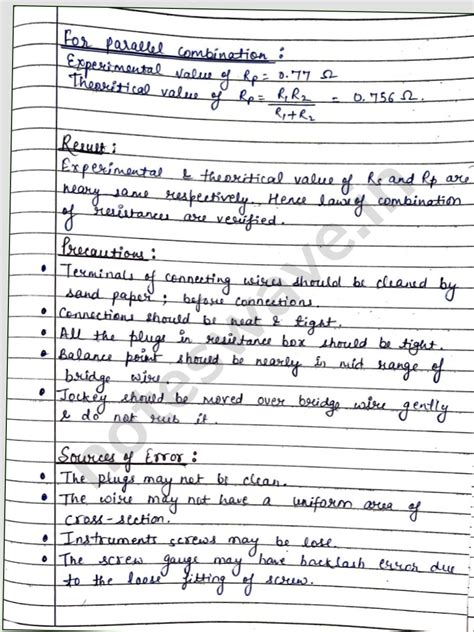 For parallel combination :
Experimental value of Rp = 0.77 Ω
Theoritical value of Rp = R1R2 / R1+R2 = 0.756 Ω.
Result :
Experimental & theoritical value of Rs and Rp are
neary same respectively. Hence law of combination
of resistances are verified.
Precautions :
• Terminals of connecting wires should be cleaned by
sand paper ; before connections.
• Connections should be neat & tight.
• All the plugs in resistance box should be tight.
• Balance point should be nearly in mid range of
bridge wire
• Jockey should be moved over bridge wire gently
& do not rub it.
Sources of Error :
• The plugs may not be clean.
• The wire may not have a uniform area of
cross-section.
• Instruments screws may be lose.
• The screw gauge may have backlash error due
to the loose fitting of screw.
noteswave.in